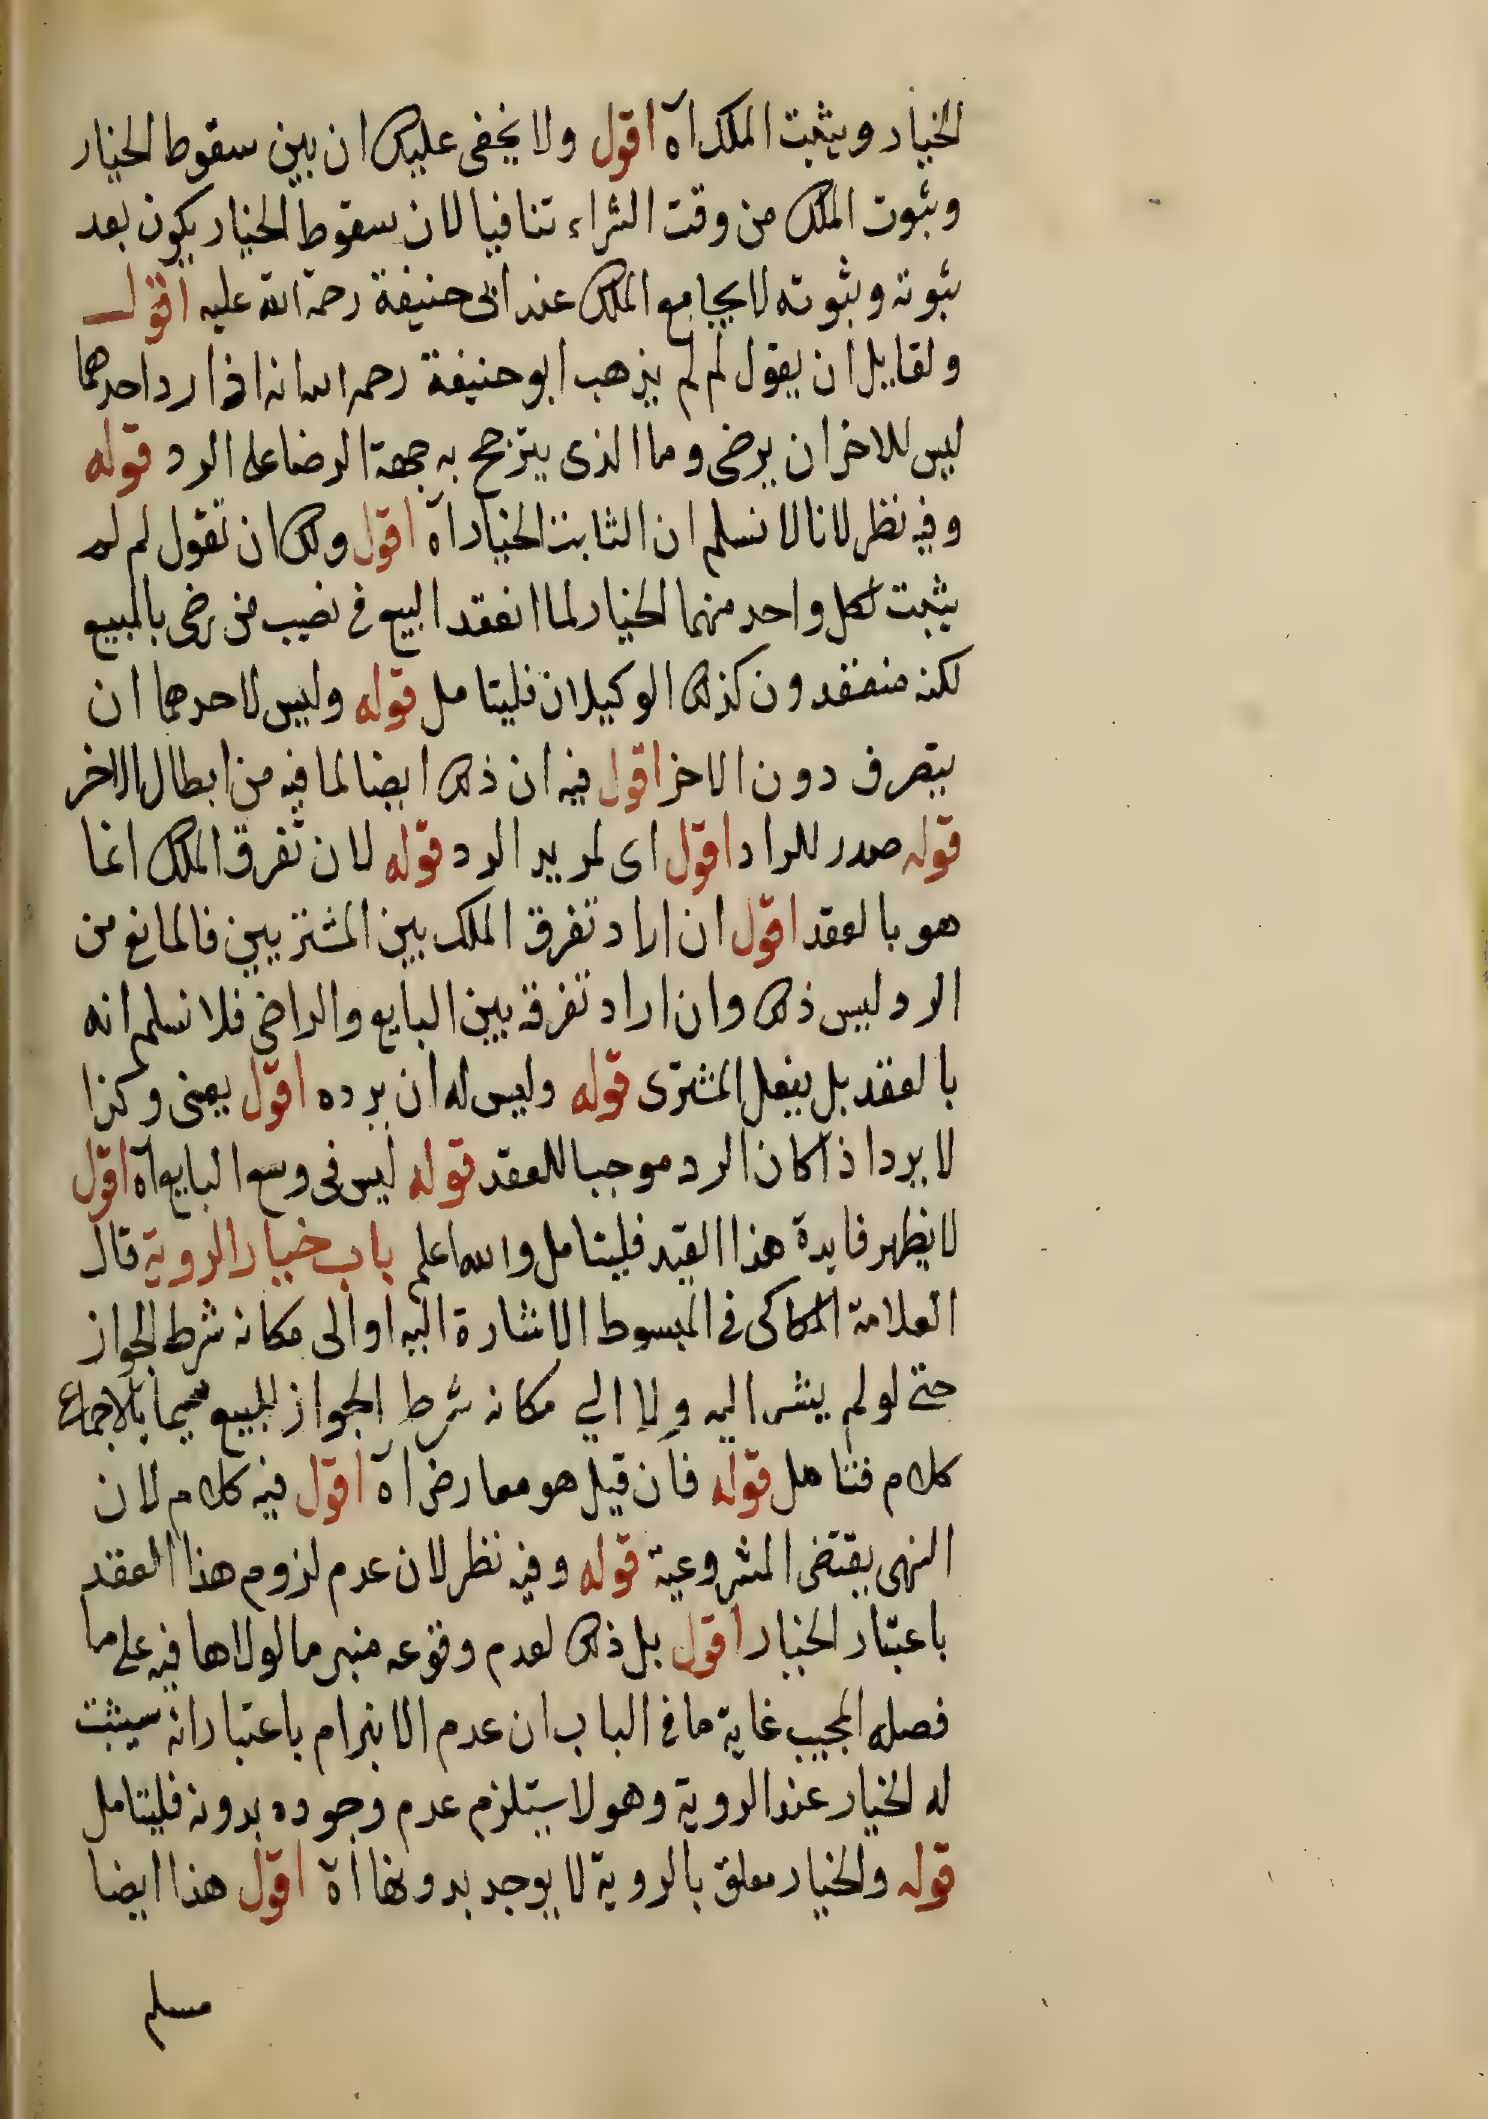 الخيار ويثبت الملك اه اقول ولا يخفى عليك ان بين سقوط الخيار
وثبوت الملك من وقت الشراء تنافيا لان سقوط الخيار يكون بعد
ثبوته وثبوته لا يجامع الملك عند ابى حنيفة رحمة الله عليه اقول
ولقايل ان يقول لم لم يذهب ابو حنيفة رحمه الله انه اذا رد احدهما
ليس للاخر ان يرضى وما الذى يترجح به جهة الرضا على الرد قوله
وفيه نظر لانا لا نسلم ان الثابت الخيار اه اقول ولك ان تقول لم لو
يثبت لكل واحد منهما الخيار لما انعقد البيع في نصيب من رضى بالمبيع
لكنه منعقد ون كذلك الوكيلان فليتامل قوله وليس لاحدهما ان
يتصرف دون الاخر اقول فيه ان ذلك ايضا لما فيه من ابطال الاخر
قوله صدر للراد اقول اى لمريد الرد قوله لان تفرق الملك انما
هو بالعقد اقول ان اراد تفرق الملك بين المشتريين فالمانع من
الرد ليس ذلك وان اراد تفرقه بين البايع والراضى فلا نسلم انه
بالعقد بل بفعل المشترى قوله وليس له ان يرده اقول يعنى وكذا
لا يرد اذا كان الرد موجبا للعقد قوله ليس فى وسع البايع اه اقول
لا يظهر فايدة هذا القيد فليتامل والله اعلم باب خيار الروية قال
العلامة الكاكى في المبسوط الاشارة اليه او الى مكانه شرط الجواز
حتى لو لم يشر اليه ولا الي مكانه شرط الجواز للمبيع سيما بالاجماع
كلام فتامل قوله فان قيل هو معارض اه اقول فيه كلام لان
النهى يقتضى المشروعية قوله وفيه نظر لان عدم لزوم هذا العقد
باعتبار الخيار اقول بل ذلك لعدم وقوعه منبرما لولاها فيه على ما
فصله المجيب غاية ما في الباب ان عدم الانبرام باعتبار انه سيثبت
له الخيار عند الروية وهو لا يستلزم عدم وجوده بدونه فليتامل
قوله والخيار معلق بالروية لا يوجد بدونها اه اقول هذا ايضا
مسلم